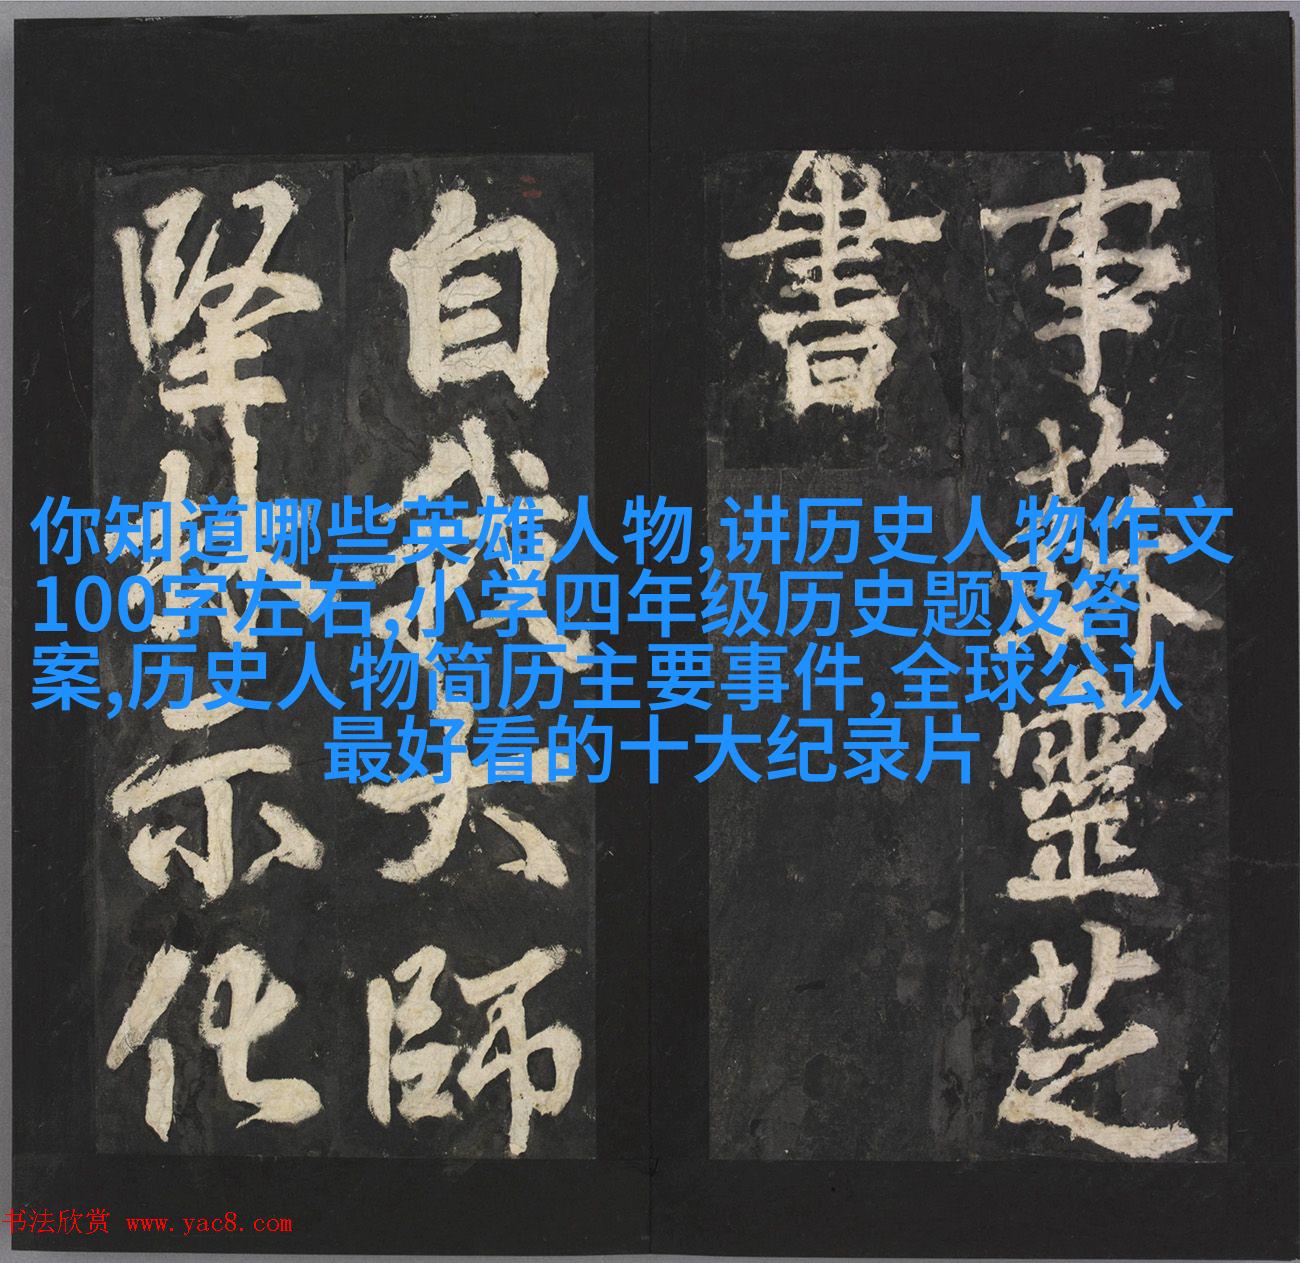 事蘇靈芝
書
自我大師
堅林示化
你知道哪些英雄人物,讲历史人物作文
100字左右,小学四年级历史题及答
案,历史人物简历主要事件,全球公认
最好看的十大纪录片
书法欣赏 www.yac8.com